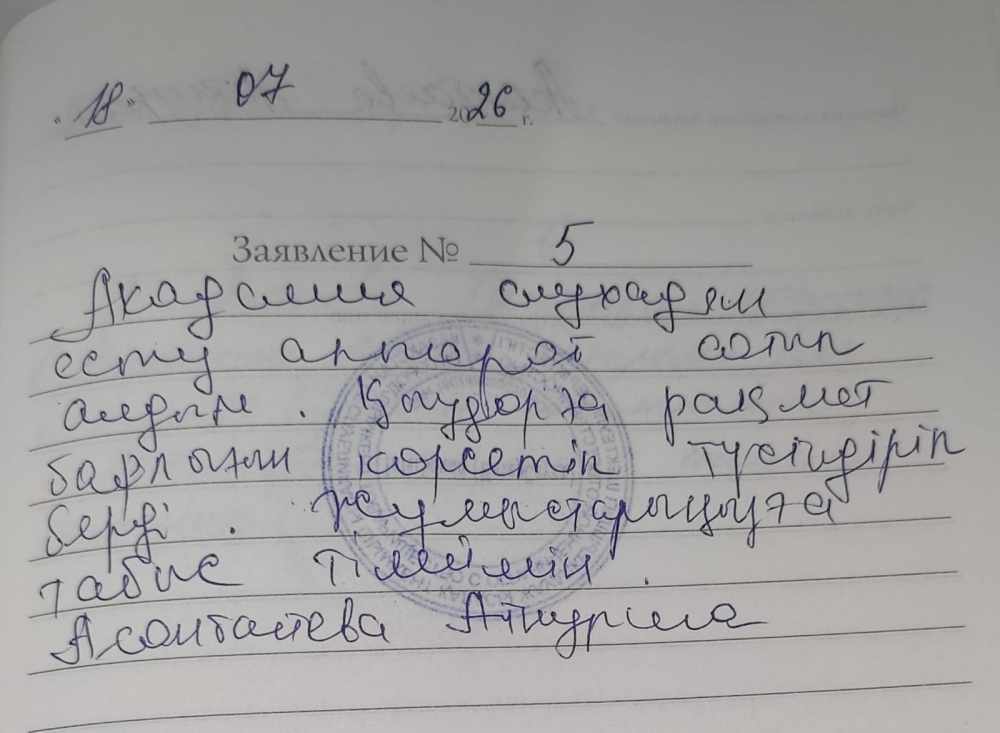 "18" 07 2026 г.
Заявление № 5
Академия слухадан
есту аппарат сотып
алдым. Қыздарға рақмет
барлығын көрсетіп түсіндіріп
берді. Жұмыстарыңызға
табыс тілеймін.